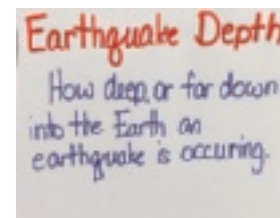 Earthquake Depth
How deep, or far down
into the Earth an
earthquake is occuring.